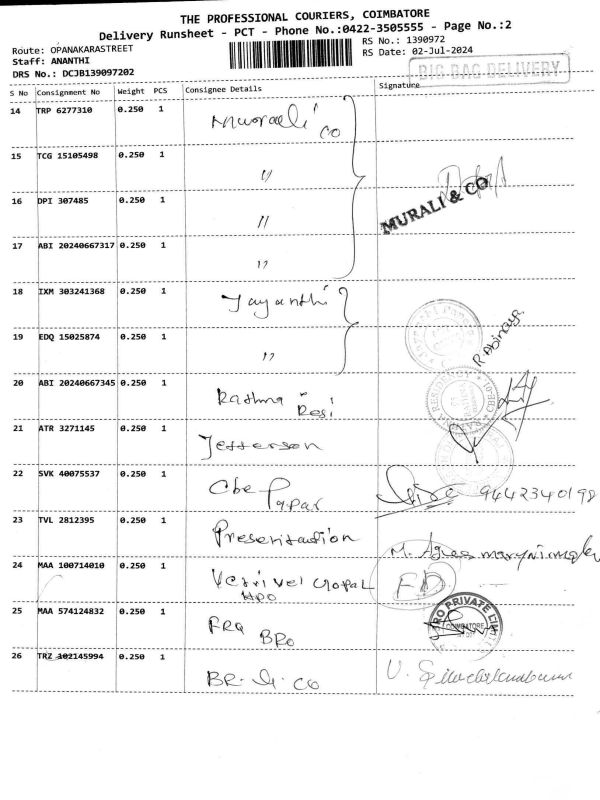 THE PROFESSIONAL COURIERS, COIMBATORE
Delivery Runsheet - PCT - Phone No.:0422-3505555 - Page No.:2
Route: OPANAKARASTREET
RS No.: 1390972
Staff: ANANTHI
RS Date: 02-Jul-2024
DRS No.: DCJB139097202
BIG BAG DELIVERY
S No Consignment No Weight PCS Consignee Details Signature
14 TRP 6277310 0.250 1
CO
15 TCG 15105498 0.250 1 "
16 DPI 307485 0.250 1 "
MURALI & CO
17 ABI 20240667317 0.250 1 "
18 IXM 303241368 0.250 1 Jayanthi
19 EDQ 15025874 0.250 1 "
R Abinaya
20 ABI 20240667345 0.250 1
Resi
21 ATR 3271145 0.250 1 Jefferson
22 SVK 40075537 0.250 1 Cbe Papar
9442340198
23 TVL 2812395 0.250 1 Presentation
24 MAA 100714010 0.250 1 Vetrivel Gopal
FD
25 MAA 574124832 0.250 1 BRO
PRIVATE LIMITED
COIMBATORE
26 TRZ 102145994 0.250 1